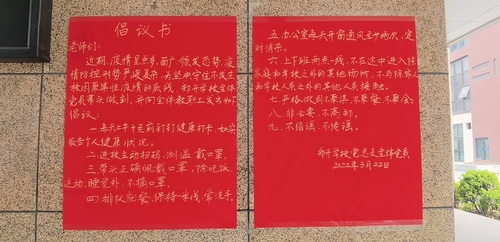 倡议书
老师们:
近期,疫情呈点多、面广、频发态势,疫
情防控形势严峻复杂,为坚决守住不发生
校园聚集性疫情的底线,郑开学校全体
党员带头做到,并向全体教职工发出如下
倡议:
一、每天上午十点前钉钉健康打卡,如实
报告个人健康状况。
二、进校主动扫码、测温、戴口罩。
三、带头正确佩戴口罩,除吃饭、
运动、睡觉外,不摘口罩。
四、排队就餐,保持一米线,常洗手。
五、办公室每天开窗通风至少两次,定
时消杀。
六、上下班两点一线,不在途中进入除
家庭和学校之外的其他场所,不与除家人
和学校人员之外的其他人员接触。
七、严格做到不聚集、不聚餐、不聚会。
八、非必要,不离郑。
九、不信谣、不传谣。
郑开学校党总支全体党员
2022年3月22日